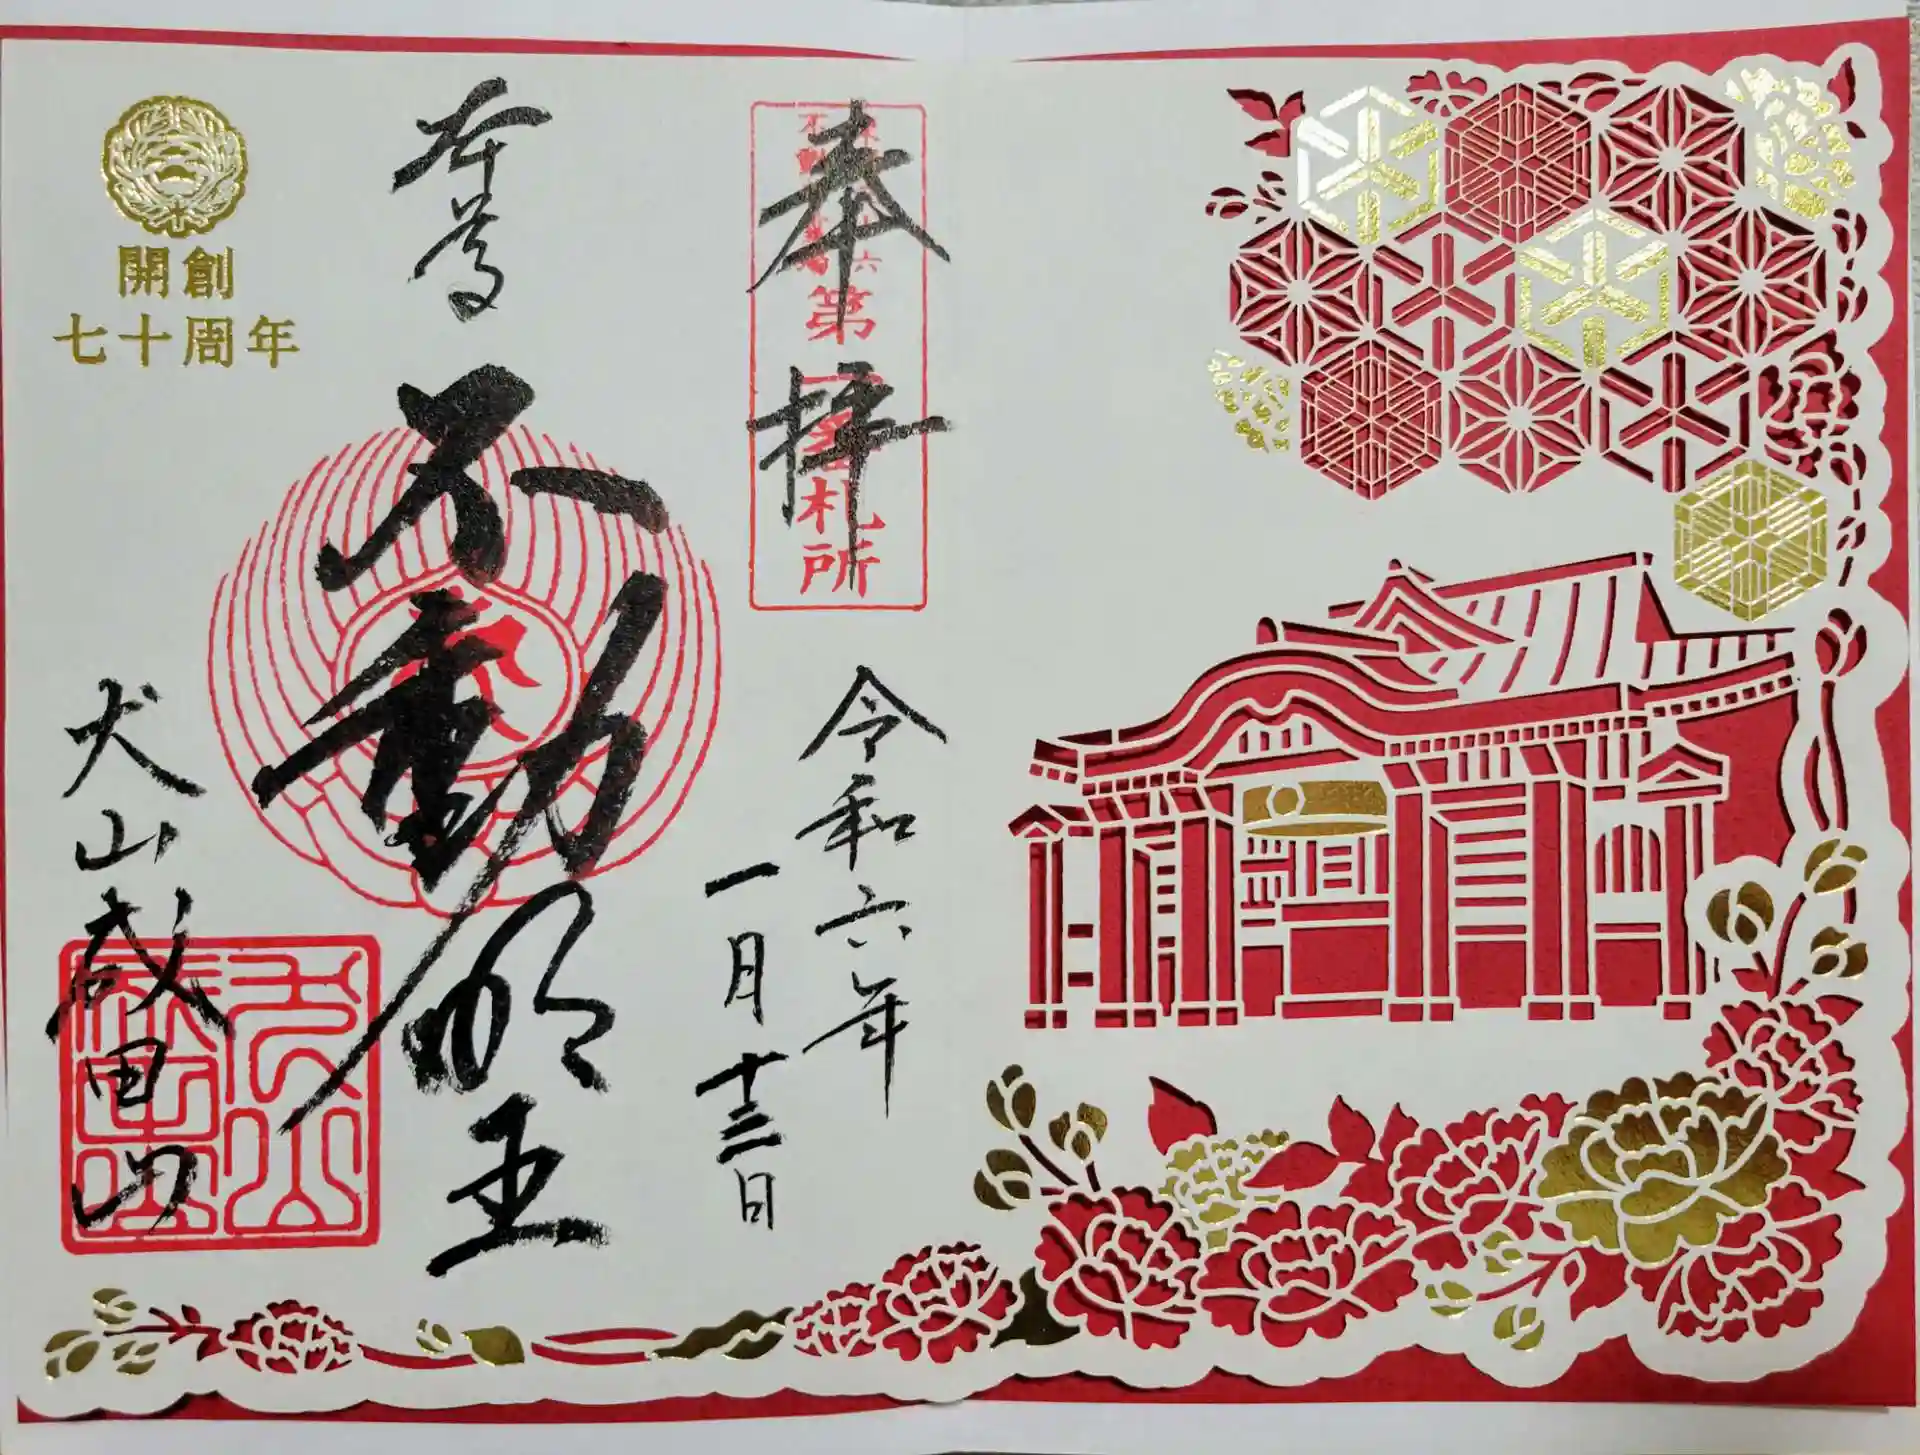 奉拝
第
札所
令和六年
一月十三日
本尊
不動明王
犬山成田山
開創
七十周年